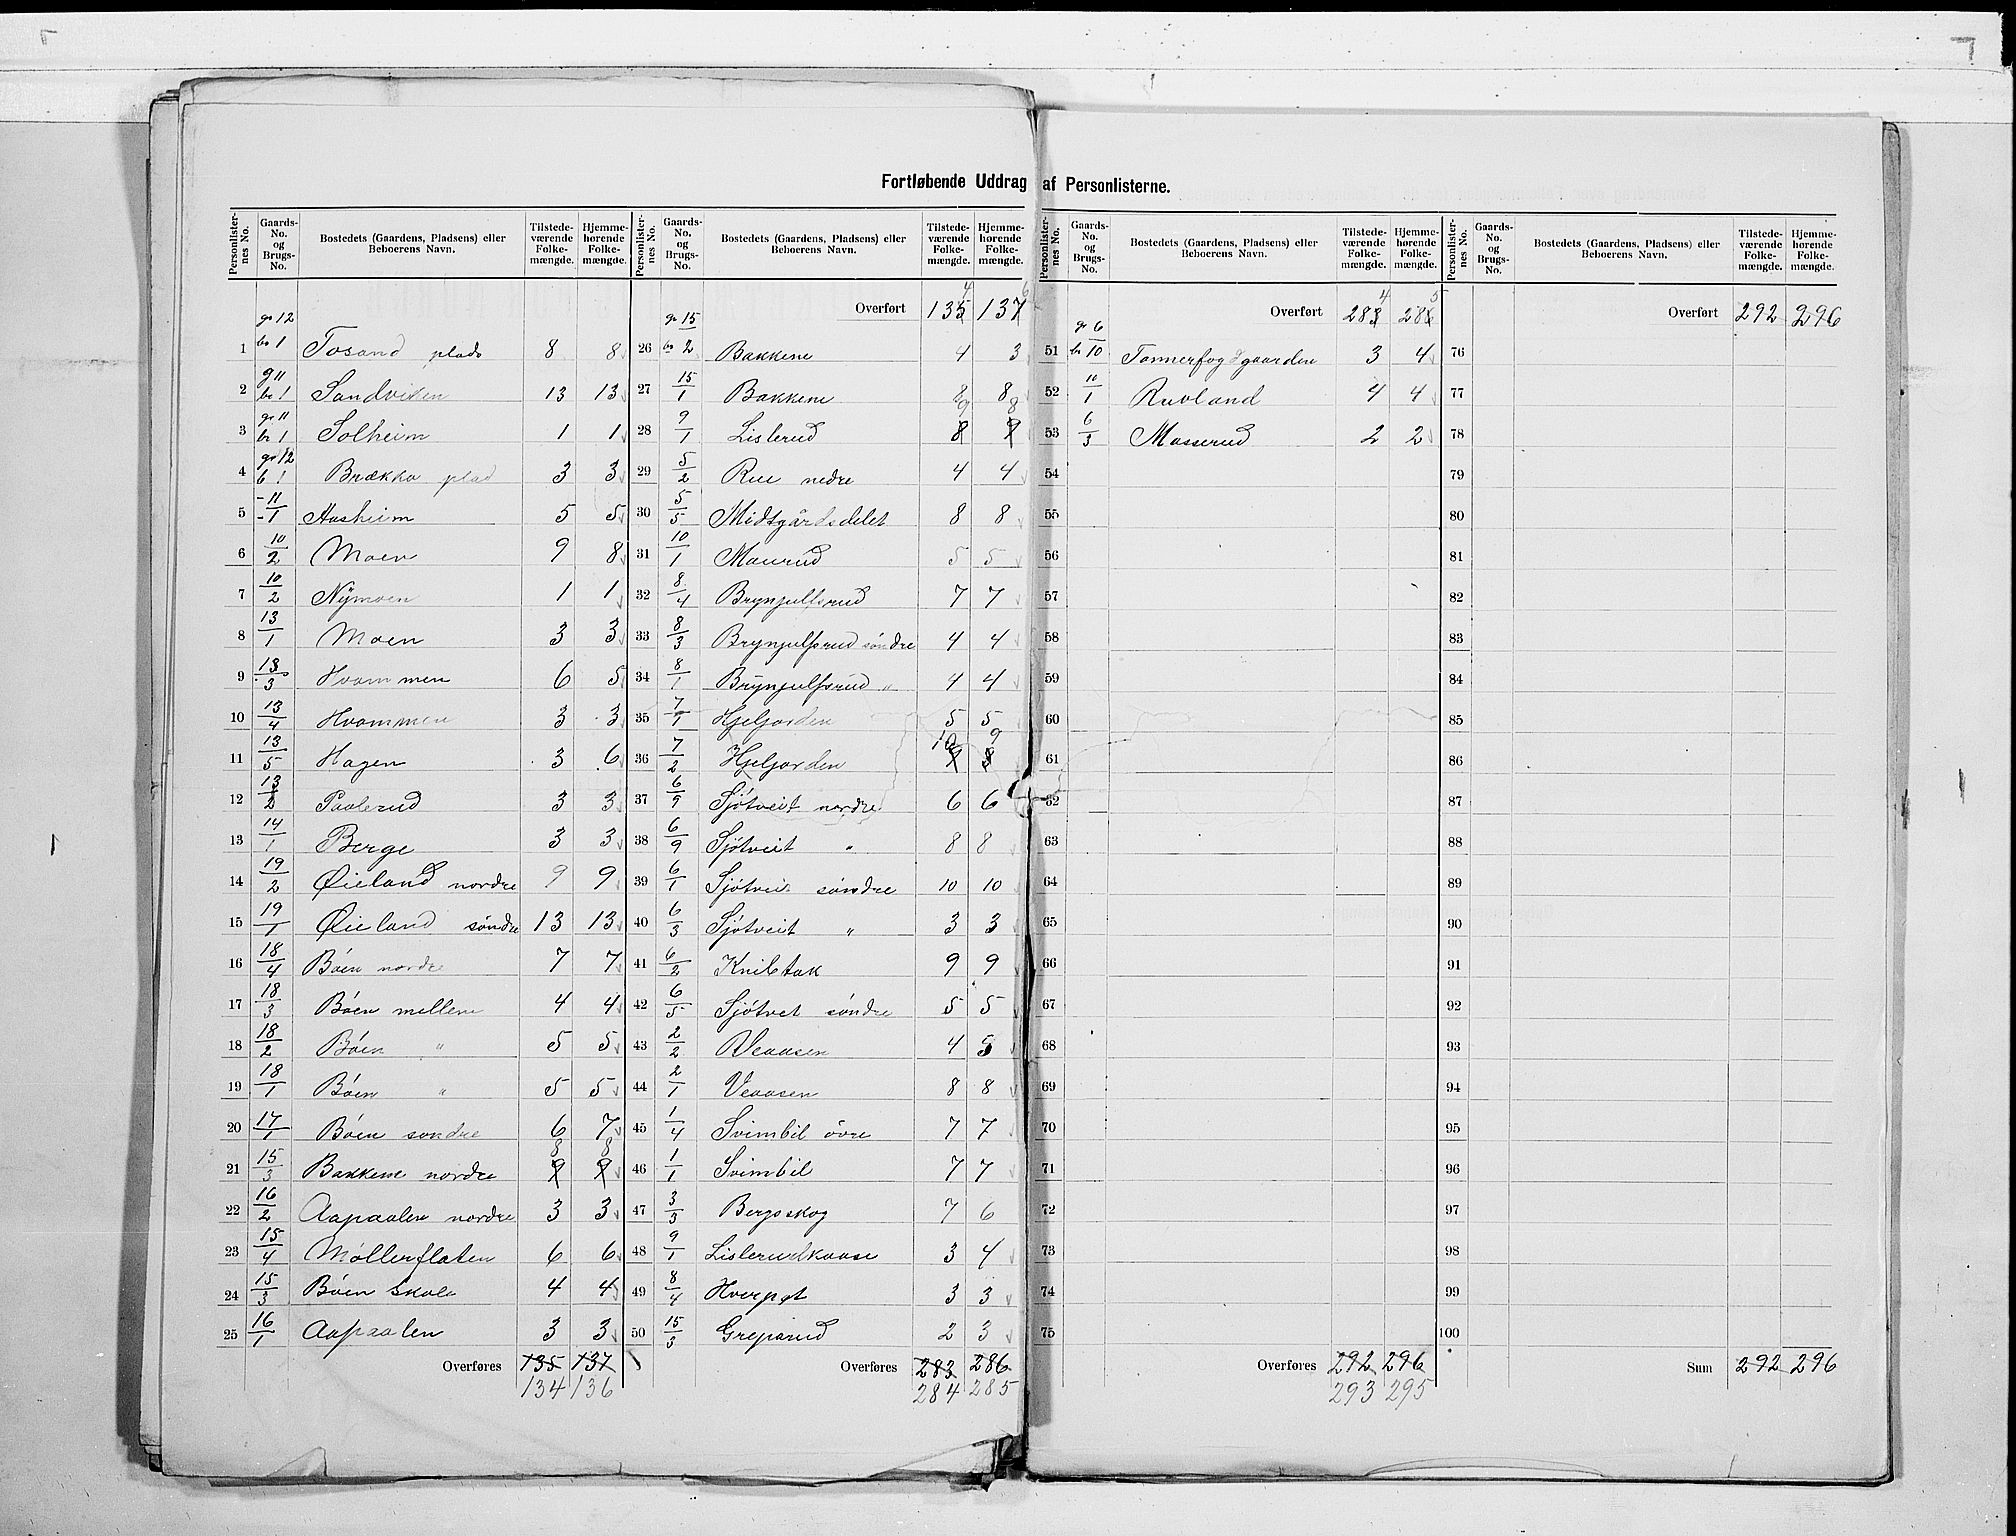 Fortløbende Uddrag af Personlisterne.
Personlister-nes No. Gaards-No. og Brugs-No. Bostedets (Gaardens, Pladsens) eller Beboerens Navn. Tilstede-værende Folke-mængde. Hjemme-hørende Folke-mængde.
1 gr 12 br 1 Tosand plads 8 8
2 g 11 br 1 Sandviken 13 13
3 gr 11 br 1 Solheim 1 1
4 gr 12 b 1 Brækka plad 3 3
5 11/1 Aasheim 5 5
6 10/2 Moen 9 8
7 10/2 Nymoen 1 1
8 13/1 Moen 3 3
9 13/3 Hvammen 6 5
10 13/4 Hvammen 3 3
11 13/5 Hagen 3 6
12 13/2 Paalerud 3 3
13 14/1 Berge 3 3
14 19/2 Øieland nordre 9 9
15 19/1 Øieland søndre 13 13
16 18/4 Bøen nordre 7 7
17 18/3 Bøen mellem 4 4
18 18/2 Bøen " 5 5
19 18/1 Bøen " 5 5
20 17/1 Bøen søndre 6 7
21 15/3 Bakkene nordre 9 8 9 8
22 16/2 Aapaalen nordre 3 3
23 15/4 Møllerflaten 6 6
24 15/3 Bøen Skole 4 4
25 16/1 Aapaalen 3 3
Overføres 135 137
134 136
Personlister-nes No. Gaards-No. og Brugs-No. Bostedets (Gaardens, Pladsens) eller Beboerens Navn. Tilstede-værende Folke-mængde. Hjemme-hørende Folke-mængde.
Overført 135 4 137 6
26 gr 15 br 2 Bakkene 4 3
27 15/1 Bakkene 8 8
28 9/1 Lislerud 8 9 9 8
29 5/2 Rue nedre 4 4
30 5/5 Midtgårdsdelet 8 8
31 10/1 Maurud 5 5
32 8/4 Brynjulfsrud 7 7
33 8/3 Brynjulfsrud søndre 4 4
34 8/1 Brynjulfsrud " 4 4
35 7/1 Hjeljorden 5 5
36 7/2 Hjeljorden 9 10 8 9
37 6/9 Sjøtveit nordre 6 6
38 6/9 Sjøtveit " 8 8
39 6/1 Sjøtveit søndre 10 10
40 6/3 Sjøtveit " 3 3
41 6/2 Knibtak 9 9
42 6/5 Sjøtvet søndre 5 5
43 2/2 Veaasen 4 5
44 2/1 Veaasen 8 8
45 1/4 Svimbil øvre 7 7
46 1/1 Svimbil 7 7
47 3/3 Bergsskog 7 6
48 9/1 Lislerudkaase 3 4
49 8/4 Hverpet 3 3
50 15/3 Grejsrud 2 3
Overføres 283 286
284 285
Personlister-nes No. Gaards-No. og Brugs-No. Bostedets (Gaardens, Pladsens) eller Beboerens Navn. Tilstede-værende Folke-mængde. Hjemme-hørende Folke-mængde.
Overført 283 4 286 5
51 gr 6 br 10 Tømmerfogdgaarden 3 4
52 10/1 Ruvland 4 4
53 6/3 Masserud 2 2
54
55
56
57
58
59
60
61
62
63
64
65
66
67
68
69
70
71
72
73
74
75
Overføres 292 296
293 295
Personlister-nes No. Gaards-No. og Brugs-No. Bostedets (Gaardens, Pladsens) eller Beboerens Navn. Tilstede-værende Folke-mængde. Hjemme-hørende Folke-mængde.
Overført 292 296
76
77
78
79
80
81
82
83
84
85
86
87
88
89
90
91
92
93
94
95
96
97
98
99
100
Sum 292 296